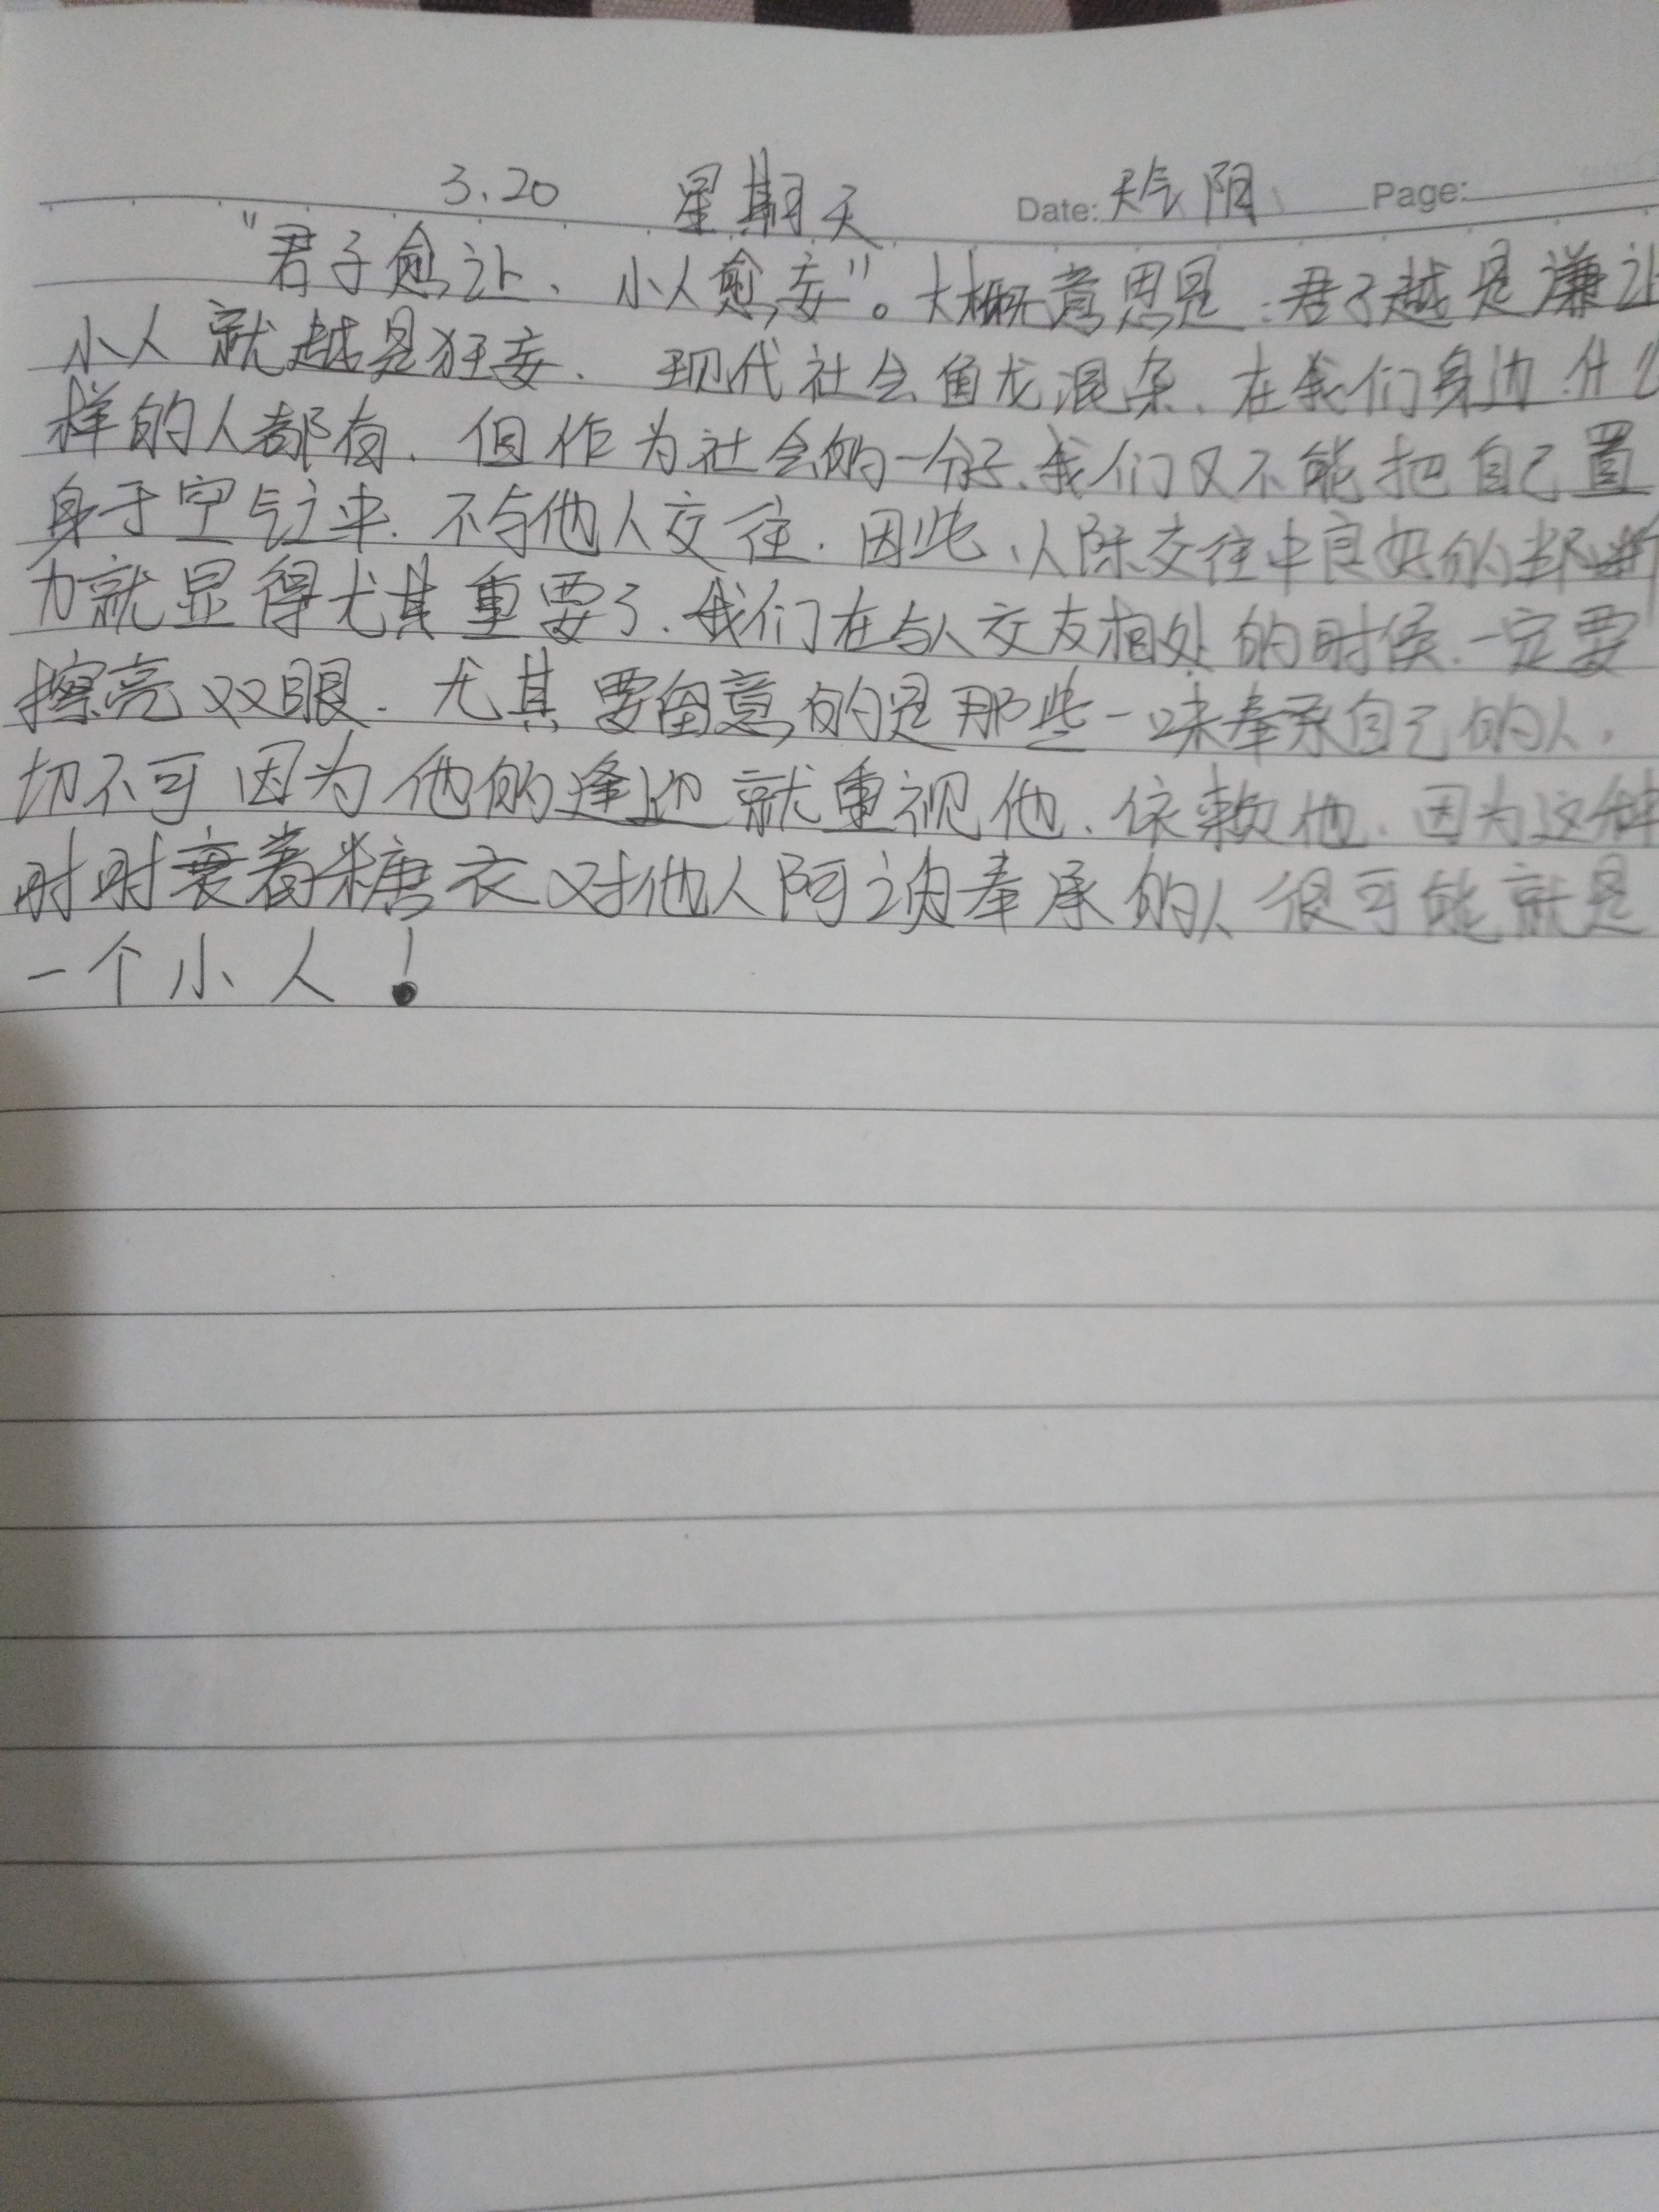 3.20 星期天 Date: 天气阴 Page:
"君子愈让、小人愈妄"。大概意思是:君子越是谦让
小人就越是狂妄. 现代社会鱼龙混杂、在我们身边什么
样的人都有. 但作为社会的一分子、我们又不能把自己置
身于空气之中. 不与他人交往. 因此、人际交往中良好的判断
力就显得尤其重要了. 我们在与人交友相处的时候. 一定要
擦亮双眼. 尤其要留意的是那些一味奉承自己的人.
切不可因为他的逢迎就重视他、依赖他. 因为这种
时时裹着糖衣对他人阿谀奉承的人很可能就是
一个小人!